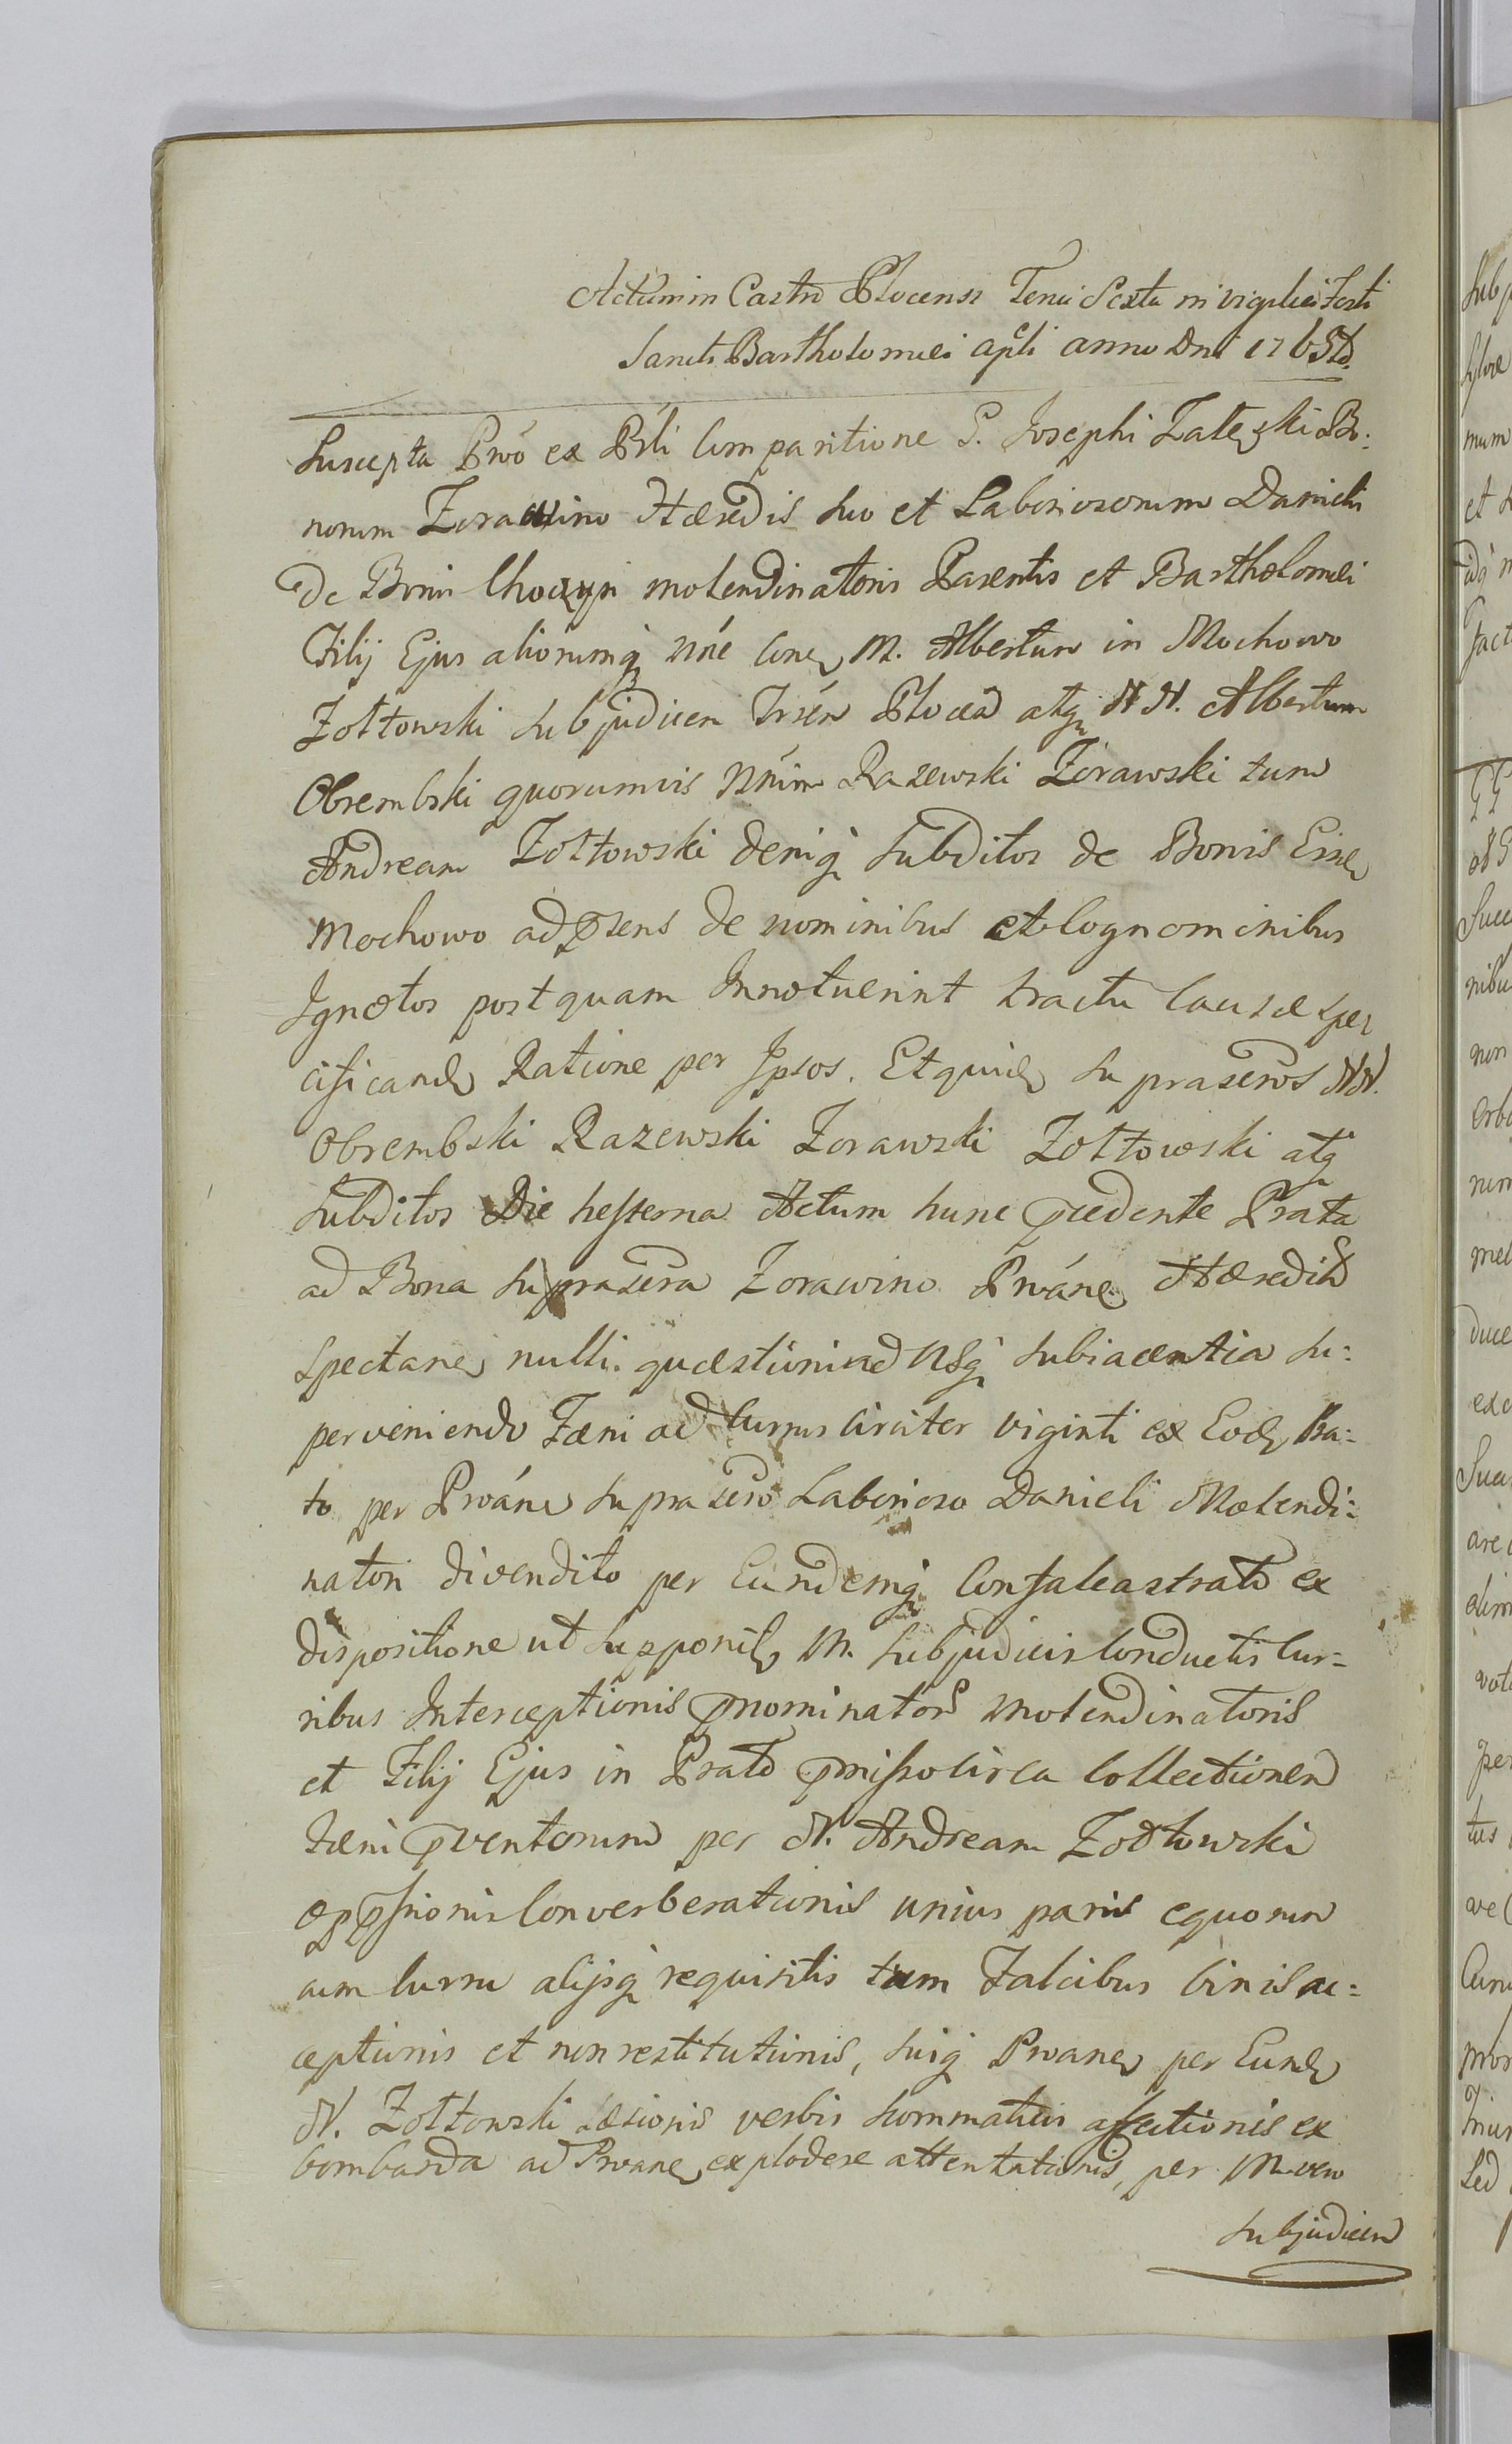 Actum in Castro Plocensi Feria Sexta in vigilia Festi
Sancti Bartholomaei apli anno Dni 17
Suscepta Prõ ex Pñli Comparitione G. Josephi Zaleski Bo:
norum Zorawino Hæredis suo et Laboriosorum Danielis
De Bonis molendinatoris Parentis et Bartholomei
Filij Ejus aliorumq nõe Conq M. Albertum in Mochowo
Zołtowski Subjudicem Trsem Plocen atq NN. Albertum
Obrembski quorumvis Nnim Razewski Zorawski tum
Andream Zołtowski deniq Subditos de Bonis Eisd
Mochowo ad psens de nominibus et Cognominibus
Ignotos postquam Innotuerint tractu Causæ spe
cificand Ratione per Ipsos. Et quid supraseros NN.
Obrembski Razewski Zorawski Zołtowski atq
Subditos Die hesterna Actum hunc pcedente Prata
ad Bona suprascra Zorawino Prõane Hæredit
Spectane nulli quæstioni usq subiacentia su:
perveniendo Fæni ad Currus circiter viginti ex Eod Pra:
to per Prõane suprascro Laborioso Danieli Molendi:
natori divendito per Eundemq Confalcastrato ex
dispositione ut supponit M. Subjudicis Conductis Cur=
ribus Interceptionis pnominators Molendinatoris
et Filij Ejus in Prato pmisso circa Collectionem
Fæni pventorum per N. Andream Zołtowski
oppssionis Converberationis unius paris equorum
cum Curru alijsq requisitis tum Falcibus binis ac:
ceptionis et non restitutionis, suiq Prõane per Eund
N. Zołtowski læsionis verbis affectionis ex
bombarda ad Prõane explodere attentationis, per M. vero
Subjudicem